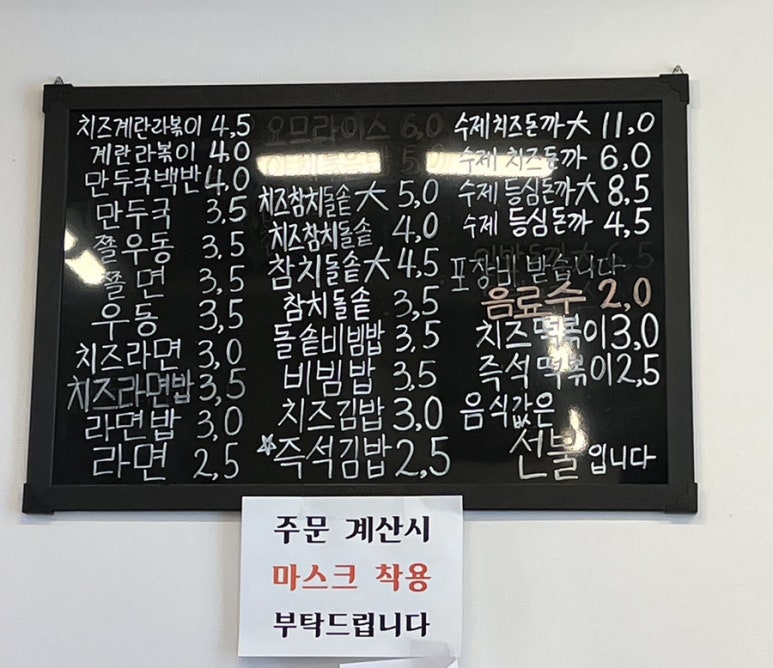 치즈계란라볶이 4,5
계란라볶이 4,0
만두국백반 4,0
만두국 3,5
쫄우동 3,5
쫄면 3,5
우동 3,5
치즈라면 3,0
치즈라면밥 3,5
라면밥 3,0
라면 2,5
오므라이스 6,0
5,0
치즈참치돌솥大 5,0
치즈참치돌솥 4,0
참치돌솥大 4,5
참치돌솥 3,5
돌솥비빔밥 3,5
비빔밥 3,5
치즈김밥 3,0
☆즉석김밥 2,5
수제치즈돈까大 11,0
수제 치즈돈까 6,0
수제 등심돈까大 8,5
수제 등심돈까 4,5
포장비 받습니다
음료수 2,0
치즈떡볶이 3,0
즉석떡볶이 2,5
음식값은
선불 입니다
주문 계산시
마스크 착용
부탁드립니다